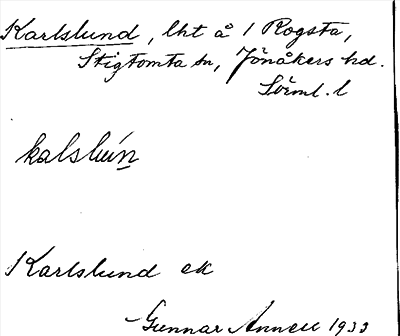 Karlslund, lht å 1 Rogsta,
Stigtomta sn, Jönåkers hd.
Sörml. l
kalslún
Karlslund ek
Gunnar Annell 1933